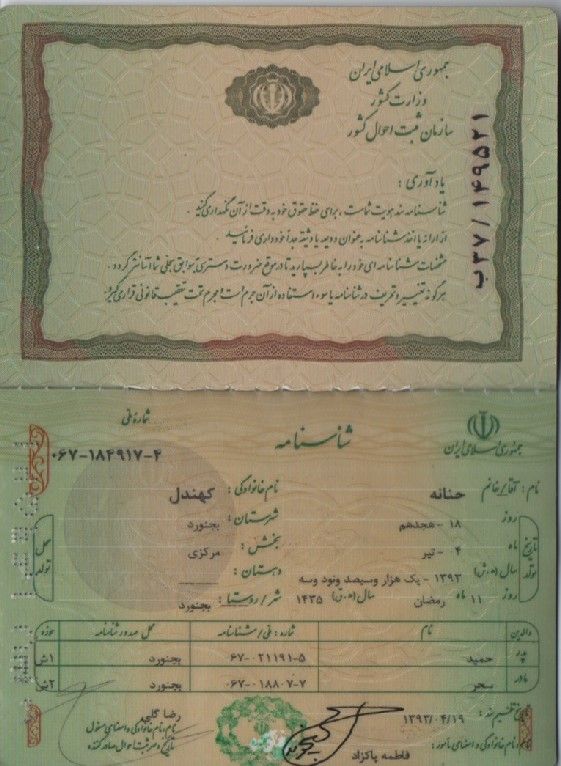 جمهوری اسلامی ایران
وزارت کشور
سازمان ثبت احوال کشور
ب۳۷/۱۴۹۵۲۱
یادآوری :
شناسنامه سند هویت شماست ، برای حفظ حقوق خود به دقت از آن نگهداری کنید .
از ارائه یا اخذ شناسنامه به عنوان ودیعه یا وثیقه جداً خودداری فرمائید .
مشخصات شناسنامه ای خود را به خاطر بسپارید تا در موقع ضرورت دسترسی به سوابق سجلی شما آسانتر گردد .
هرگونه تغییر و تحریف در شناسنامه یا سوء استفاده از آن جرم است و مجرم تحت تعقیب قانونی قرار می گیرد .
جمهوری اسلامی ایران
شناسنامه
شماره ملی
۰۶۷-۱۸۴۹۱۷-۴
نام : آقا / خانم حنانه نام خانوادگی : کهندل
تاریخ تولد
روز ۱۸ - هجدهم شهرستان : بجنورد
ماه ۴ - تیر بخش : مرکزی
محل تولد
سال (ه.ش) ۱۳۹۳ - یک هزار وسیصد ونود وسه دهستان :
روز ۱۱ ماه رمضان سال (ه.ق) ۱۴۳۵ شهر / روستا : بجنورد
والدین نام شماره : ملی / شناسنامه محل صدور شناسنامه حوزه
پدر حمید ۰۶۷-۰۲۱۱۹۱-۵ بجنورد ۱ش
مادر سحر ۰۶۷-۰۱۸۸۰۷-۷ بجنورد ۲ش
تاریخ تنظیم سند : ۱۳۹۳/۰۴/۱۹
نام و نام خانوادگی و امضای مأمور : فاطمه پاکزاد
رضا گلی
نام ، نام خانوادگی و امضای مسئول
تاریخ و مهر ثبت احوال صادر کننده